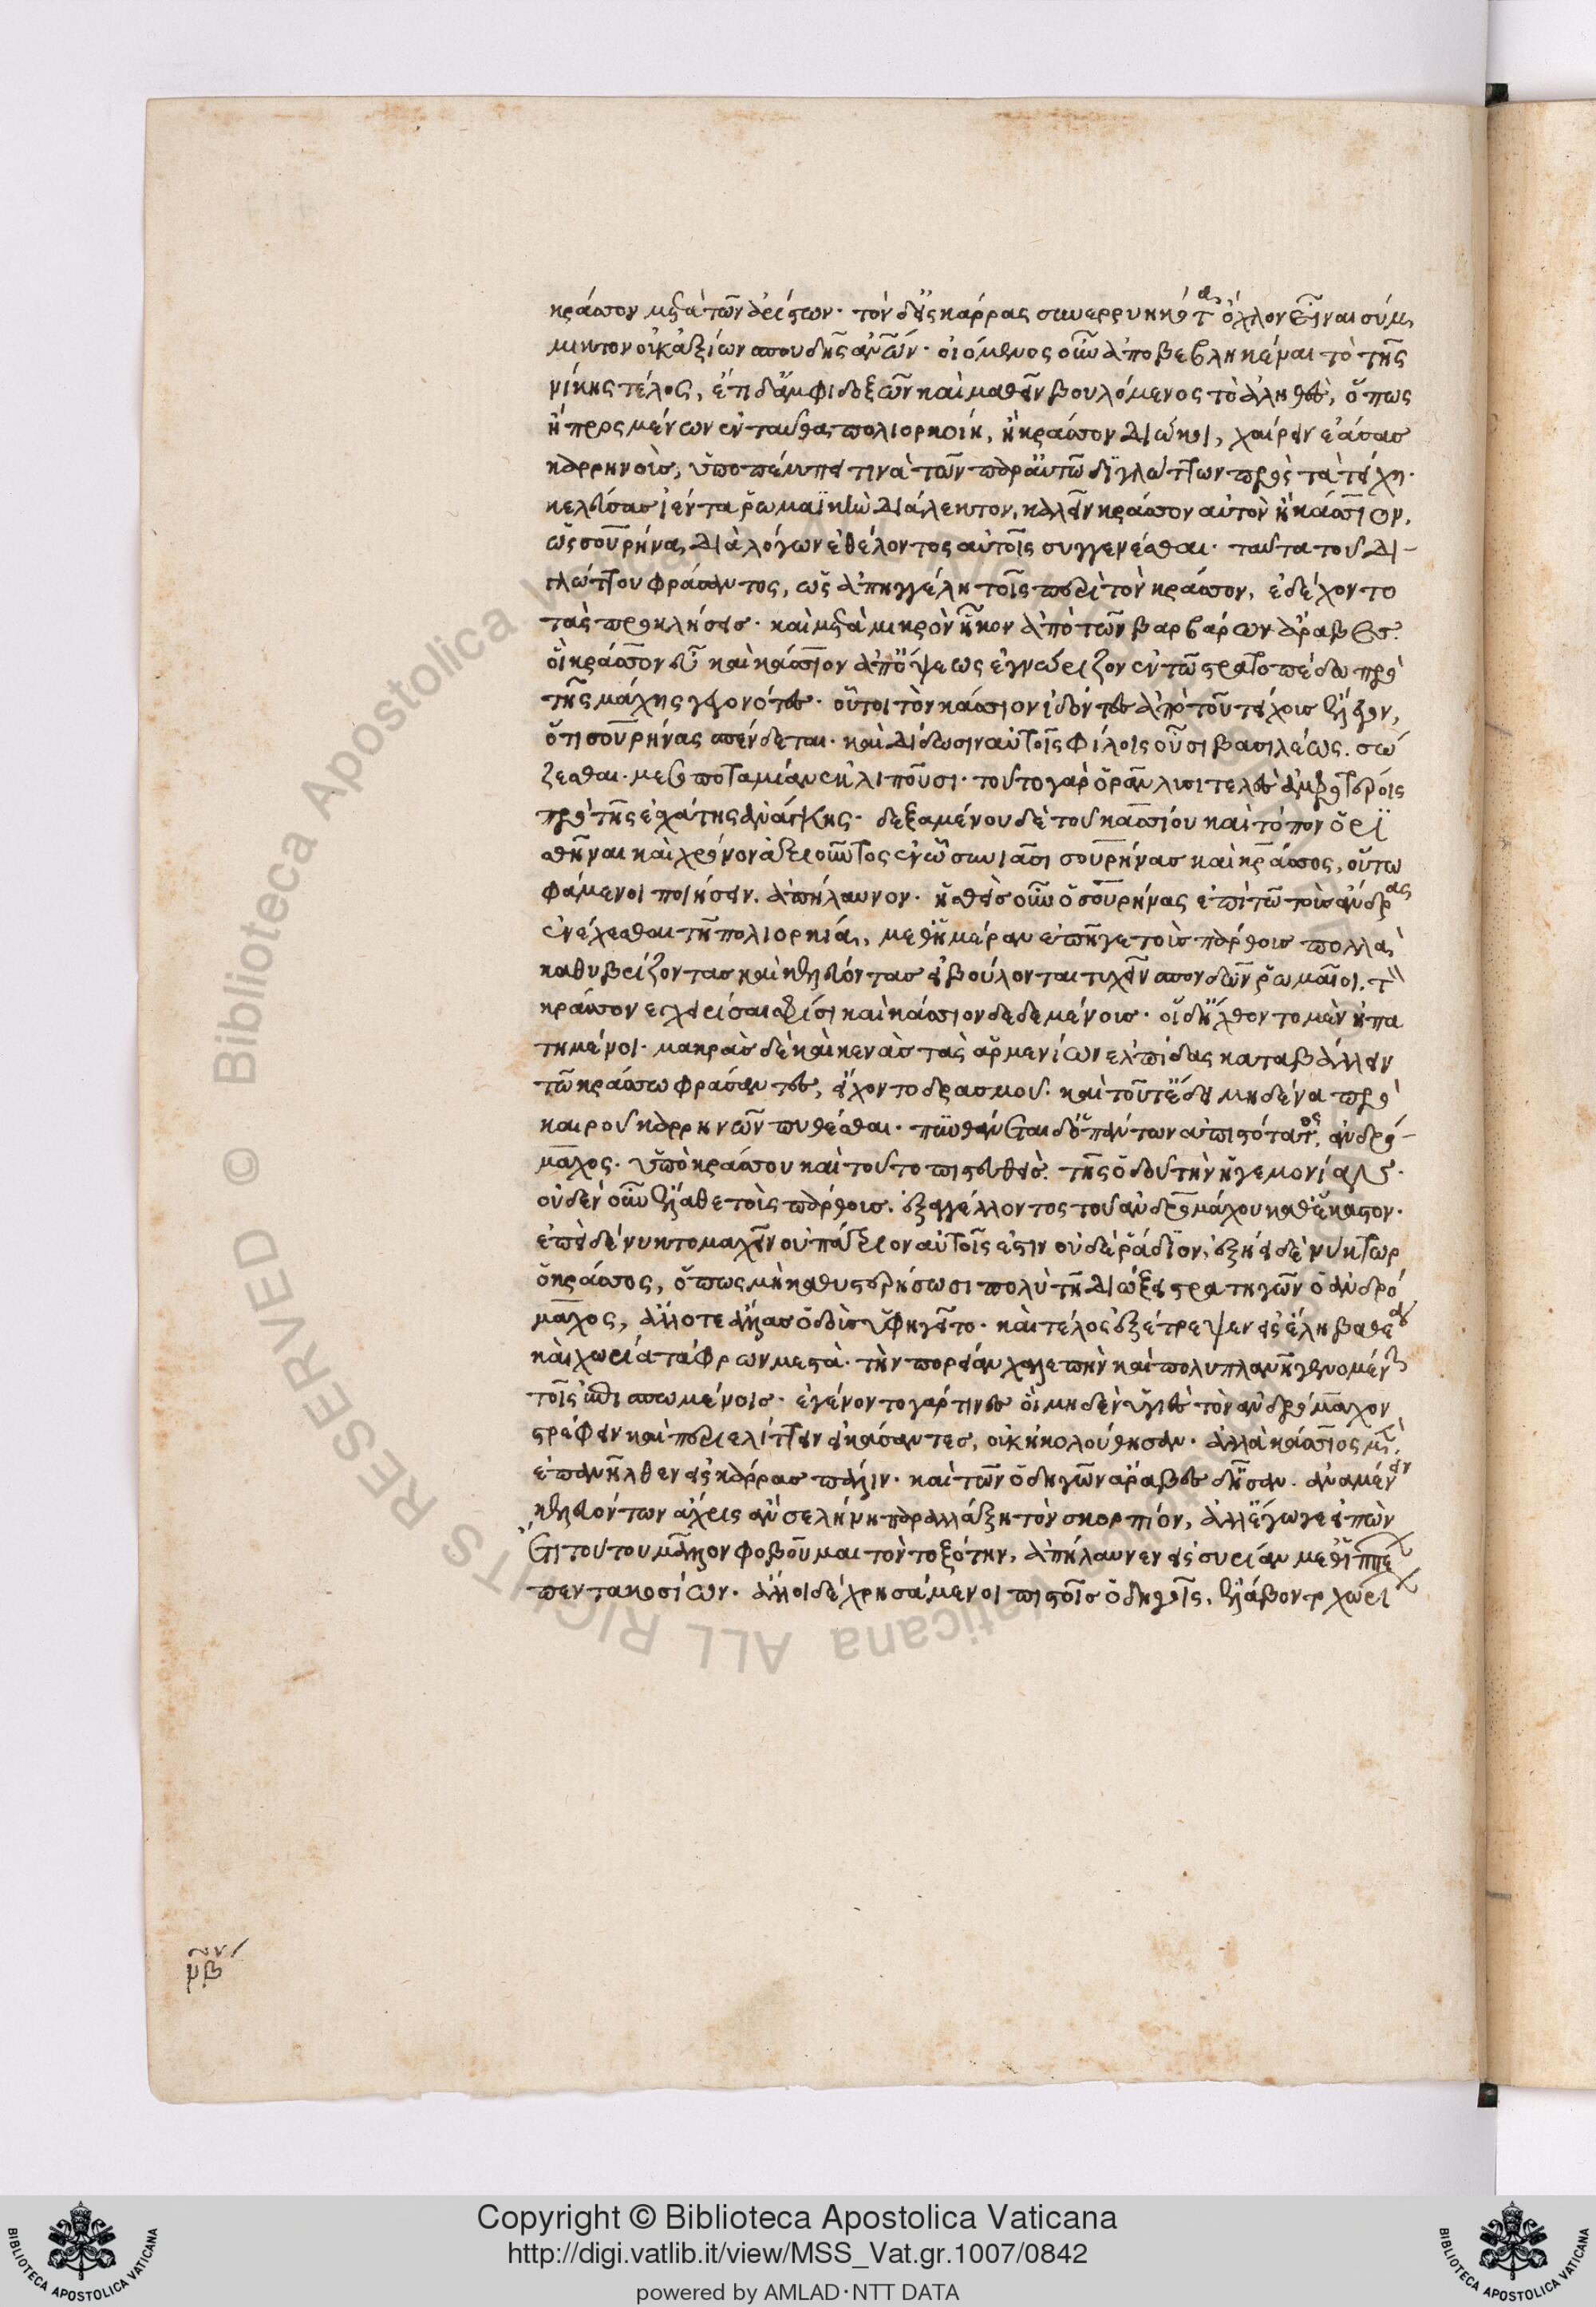 κράσσον μετὰ τῶν ἀρίστων· τὸν δ' εἰς κάρρας συνερρυηκότα ὄχλον εἶναι σύμ
μικτον οὐκ ἄξιον σπουδῆς ἀνθρώπων· οἰόμενος οὖν ἀποβεβληκέναι τὸ τῆς
νίκης τέλος, ἔτι δ' ἀμφιδοξῶν καὶ μαθεῖν βουλόμενος τὸ ἀληθὲς, ὅπως
ἢ προσμένων ἐνταῦθα πολιορκοίη, ἢ κράσσον διώκοι, χαίρειν ἐάσας
καρρηνοὺς, ὑποπέμπει τινὰ τῶν παρ' αὐτῶ διγλώττων πρὸς τὰ τείχη·
κελεύσας ἱέντα ῥωμαϊκὴν διάλεκτον, καλεῖν κράσσον αὐτὸν ἢ κάσσιον,
ὡς σουρήνα διὰ λόγων ἐθέλοντος αὐτοῖς συγγενέσθαι· ταῦτα τοῦ δι-
γλώττου φράσαντος, ὡς ἀπηγγέλη τοῖς περὶ τὸν κράσσον, ἐδέχοντο
τὰς προκλήσεις· καὶ μετὰ μικρὸν ἧκον ἀπὸ τῶν βαρβάρων ἄραβες·
οἳ κράσσον εὖ καὶ κάσσιον ἀπ' ὄψεως ἐγνώριζον ἐν τῶ στρατοπέδω πρὸ
τῆς μάχης γεγονότες· οὗτοι τὸν κάσσιον ἰδόντες ἀπὸ τοῦ τείχους ἔλεγον,
ὅτι σουρήνας σπένδεται· καὶ δίδωσιν αὐτοῖς φίλοις οὖσι βασιλέως, σώ
ζεσθαι· μεσοποταμίαν ἐκλιποῦσι· τοῦτο γὰρ ὁρᾶν λυσιτελὲς ἀμφοτέροις
πρὸ τῆς ἐσχάτης ἀνάγκης· δεξαμένου δὲ τοῦ κασσίου καὶ τόπον ὁρι
σθῆναι καὶ χρόνον ἀξιοῦντος ἐν ὧ συνίασι σουρήνας καὶ κράσσος, οὕτω
φάμενοι ποιήσειν, ἀπήλαυνον· ἡσθεὶς οὖν ὁ σουρήνας ἐπὶ τῶ τοὺς ἄνδρας
ἐνέχεσθαι τῆ πολιορκία, μεθ' ἡμέραν ἐπῆγε τοὺς πάρθους πολλὰ
καθυβρίζοντας καὶ κελεύοντας εἰ βούλονται τυχεῖν σπονδῶν ῥωμαῖοι, τὸν
κράσσον ἐγχειρίσαι σφίσι καὶ κάσσιον δεδεμένους· οἱ δ' ἤχθοντο μὲν ἠπα
τημένοι· μακρὰς δὲ καὶ κενὰς τὰς ἀρμενίων ἐλπίδας καταβάλλειν
τῶ κράσσω φράσαντες, εἴχοντο δρασμοῦ· καὶ τοῦτ' ἔδει μηδένα πρὸ
καιροῦ καρρηνῶν πυθέσθαι· πυνθάνεται δ' ὁ πάντων ἀπιστότατος, ἀνδρό-
μαχος· ὑπὸ κράσσου καὶ τοῦτο πιστευθεὶς· τῆς ὁδοῦ τὴν ἡγεμονίαν·
οὐδὲν οὖν ἔλαθε τοὺς πάρθους, ἐξαγγέλλοντος τοῦ ἀνδρομάχου καθ' ἕκαστον·
ἐπεὶ δὲ νυκτομαχεῖν οὐ πάτριον αὐτοῖς ἐστιν οὐδὲ ῥάδιον, ἐξήει δὲ νύκτωρ
ὁ κράσσος, ὅπως μὴ καθυστερήσωσι πολὺ τῆ διώξει στρατηγῶν ὁ ἀνδρό
μαχος, ἄλλοτε ἄλλας ὁδοὺς ὑφηγεῖτο· καὶ τέλος ἐξέτρεψεν εἰς ἕλη βαθέα
καὶ χωρία τάφρων μεστὰ· τὴν πορείαν χαλεπὴν καὶ πολυπλανῆ γενομένην
τοῖς ἐπισπωμένοις· ἐγένοντο γάρ τινες οἳ μηδὲν ὑγιὲς τὸν ἀνδρόμαχον
στρέφειν καὶ περιελίττειν εἰκάσαντες, οὐκ ἠκολούθησαν· ἀλλὰ κάσσιος μὲν
ἐπανῆλθεν εἰς κάρρας πάλιν· καὶ τῶν ὁδηγῶν ἄραβες δ' ἦσαν· ἀναμένειν
κελευόντων ἄχρις ἂν σελήνη παραλλάξη τὸν σκορπίον, ἀλλ' ἔγωγε εἰπὼν
ἔτι τούτου μᾶλλον φοβοῦμαι τὸν τοξότην, ἀπήλαυνεν εἰς συρίαν μεθ' ἱππέων
πεντακοσίων· ἄλλοι δὲ χρησάμενοι πιστοῖς ὁδηγοῖς, ἐλάβοντο χωρί
Copyright © Biblioteca Apostolica Vaticana
http://digi.vatlib.it/view/MSS_Vat.gr.1007/0842
powered by AMLAD·NTT DATA
© Biblioteca Apostolica Vaticana ALL RIGHTS RESERVED
BIBLIOTECA APOSTOLICA VATICANA
BIBLIOTECA APOSTOLICA VATICANA